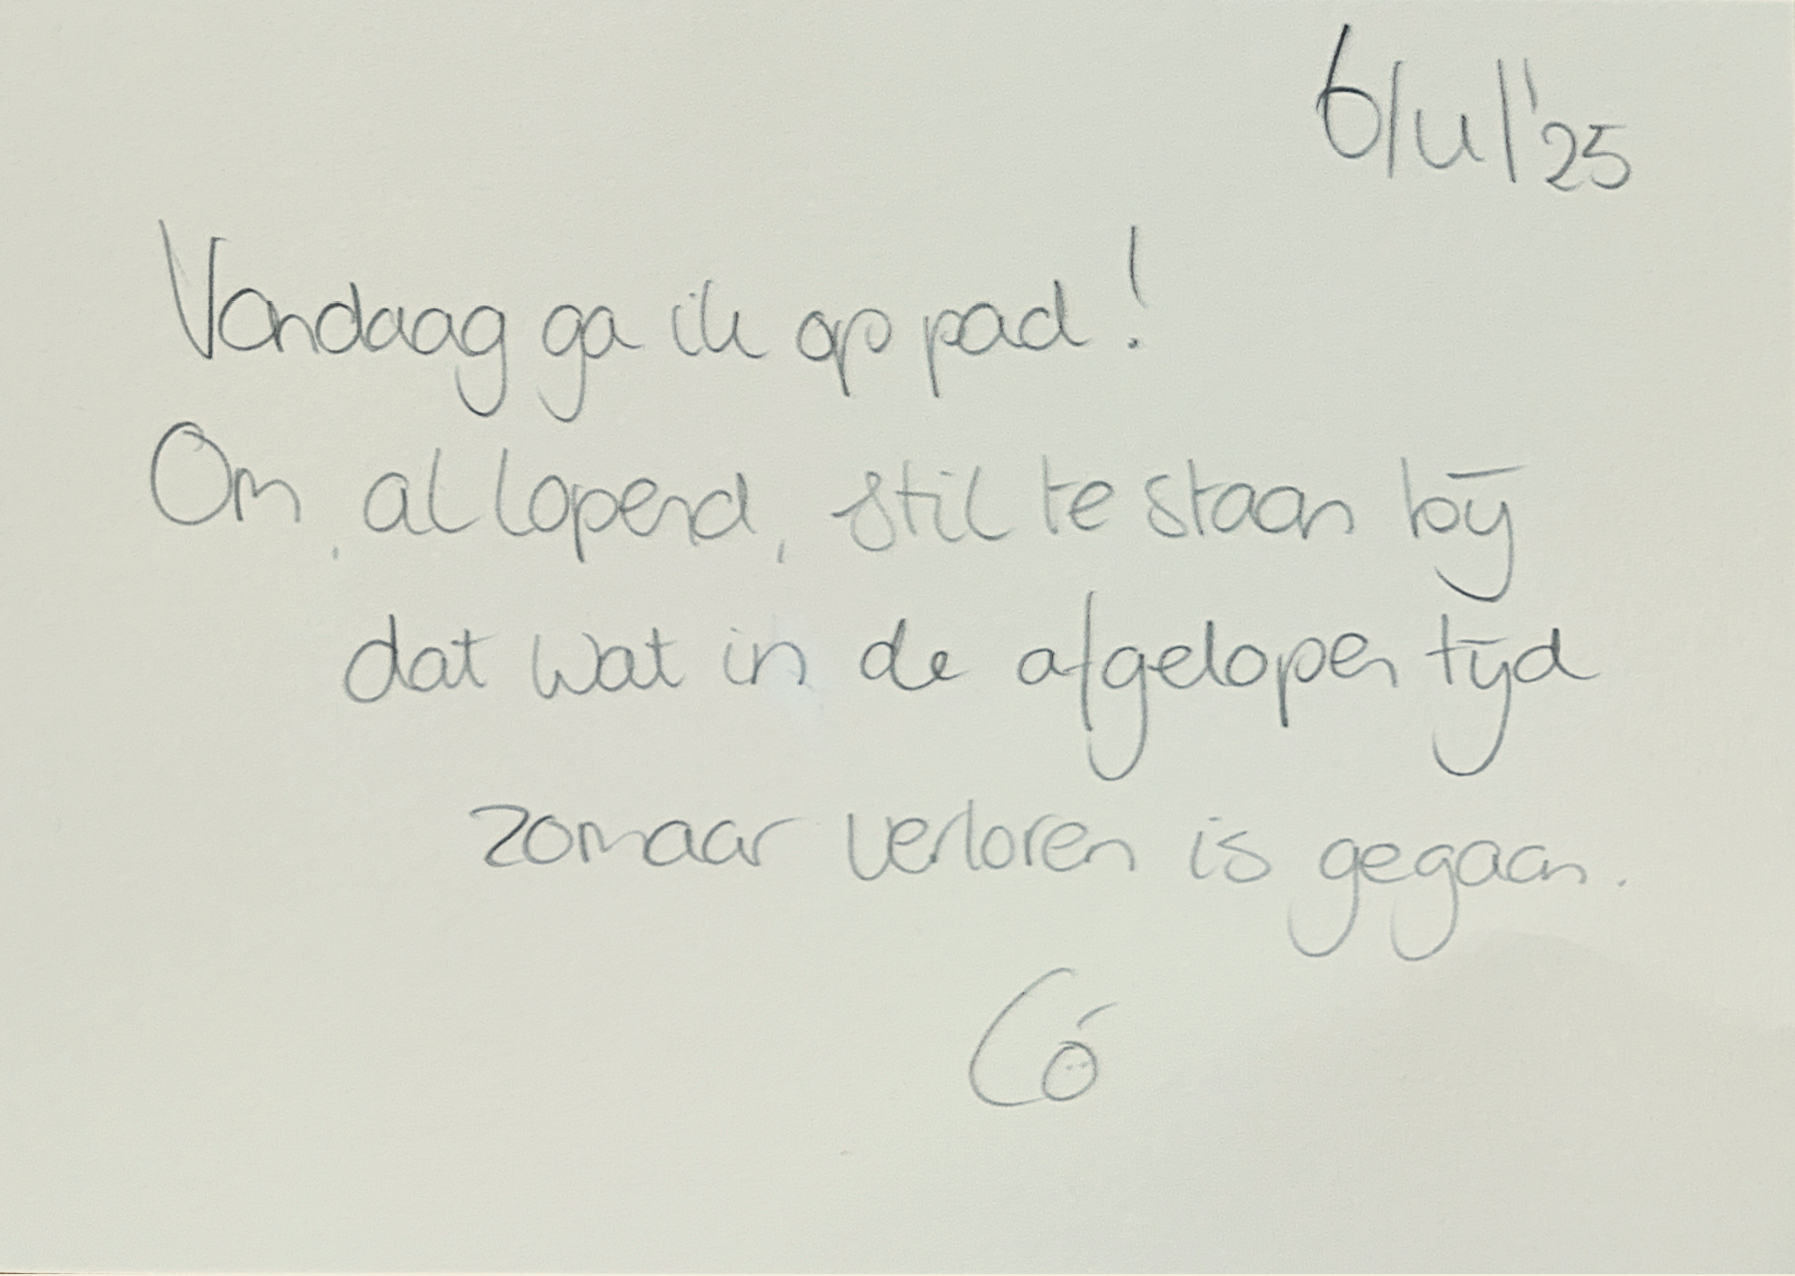 6/4/'25
Vandaag ga ik op pad!
Om, al lopend, stil te staan bij
dat wat in de afgelopen tijd
zomaar verloren is gegaan.
Có